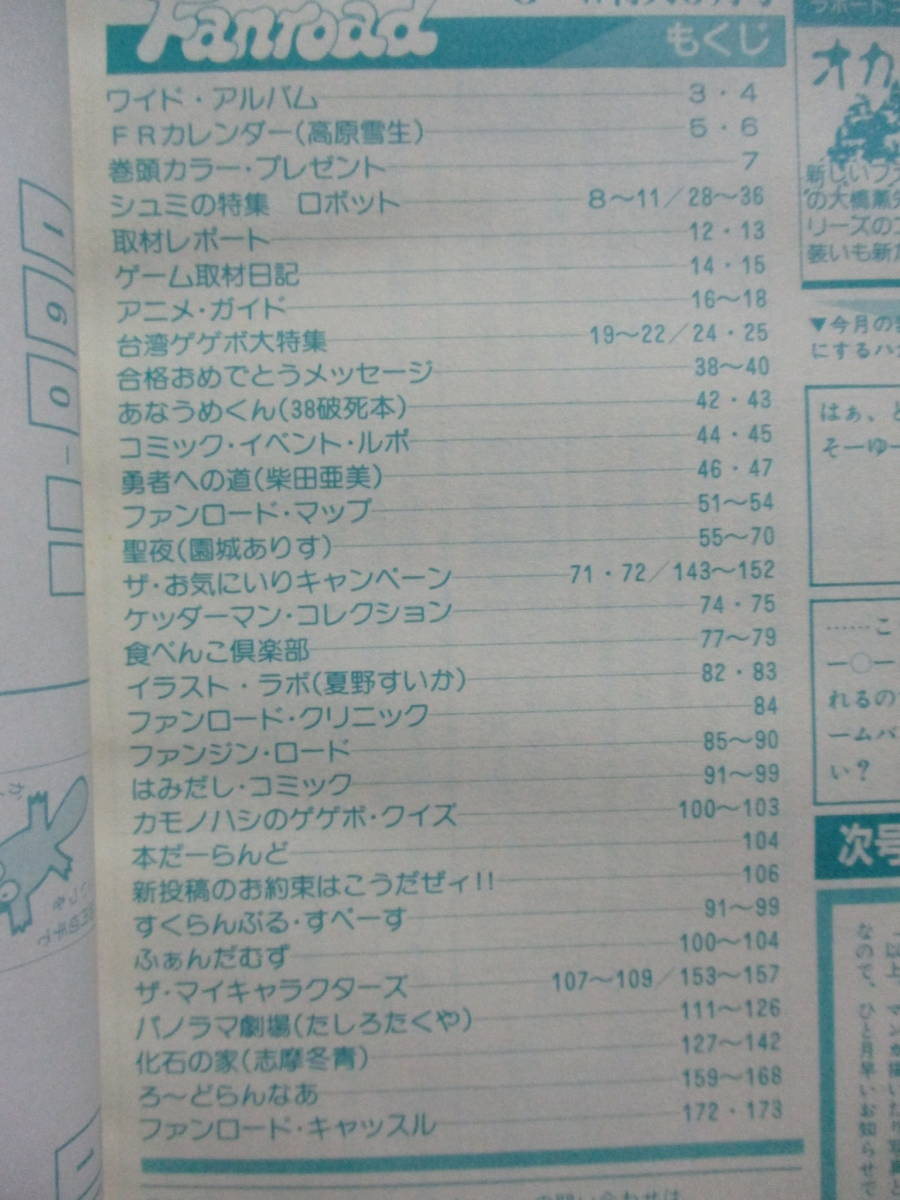 Fanroad
もくじ
ワイド・アルバム 3・4
FRカレンダー(高原雪生) 5・6
巻頭カラー・プレゼント 7
シュミの特集 ロボット 8〜11/28〜36
取材レポート 12・13
ゲーム取材日記 14・15
アニメ・ガイド 16〜18
台湾ゲゲボ大特集 19〜22/24・25
合格おめでとうメッセージ 38〜40
あなうめくん(38破死本) 42・43
コミック・イベント・ルポ 44・45
勇者への道(柴田亜美) 46・47
ファンロード・マップ 51〜54
聖夜(園城ありす) 55〜70
ザ・お気にいりキャンペーン 71・72/143〜152
ケッダーマン・コレクション 74・75
食べんこ倶楽部 77〜79
イラスト・ラボ(夏野すいか) 82・83
ファンロード・クリニック 84
ファンジン・ロード 85〜90
はみだし・コミック 91〜99
カモノハシのゲゲボ・クイズ 100〜103
本だーらんど 104
新投稿のお約束はこうだぜィ!! 106
すくらんぶる・すぺーす 91〜99
ふぁんだむず 100〜104
ザ・マイキャラクターズ 107〜109/153〜157
パノラマ劇場(たしろたくや) 111〜126
化石の家(志摩冬青) 127〜142
ろ〜どらんなあ 159〜168
ファンロード・キャッスル 172・173
オカ
新しいファ
の大橋薫
リーズの
装いも新た
▼今月の
にするハ
はぁ、と
そーゆー
……こ
ー○ー
れるの
ームバ
い?
次号
なので、ひと月早いお知らせで
160-